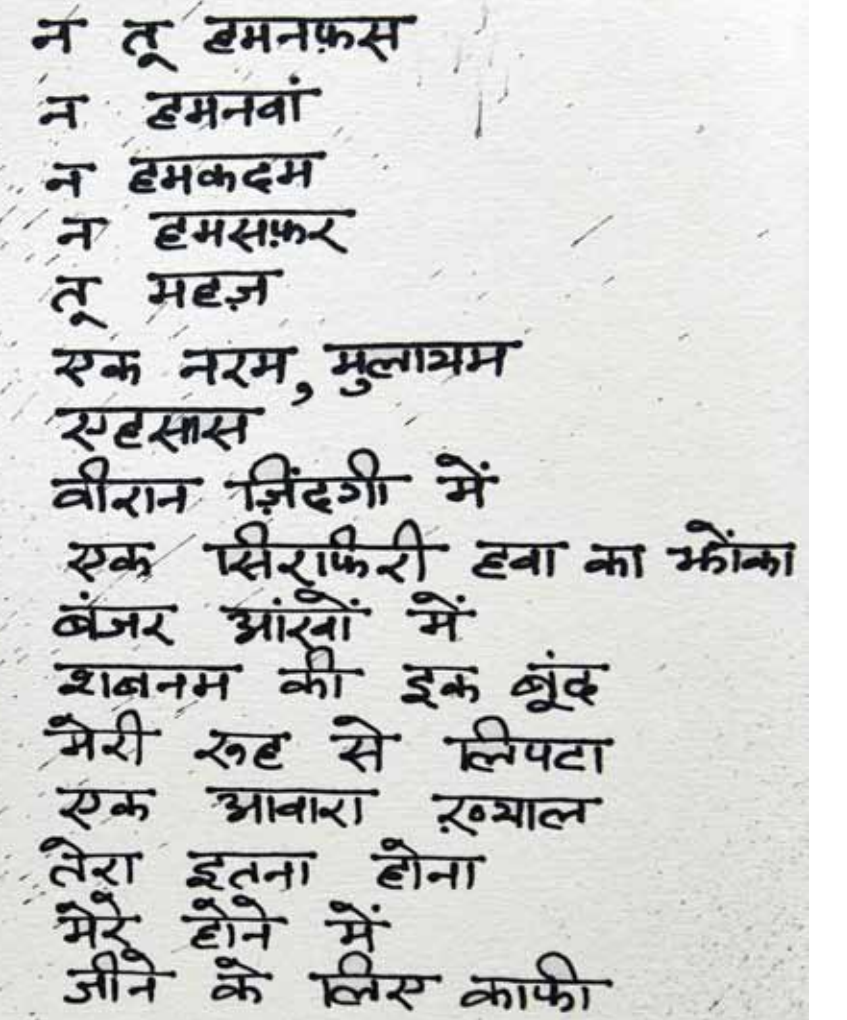 न तू हमनफ़स
न हमनवां
न हमकदम
न हमसफ़र
तू महज़
एक नरम, मुलायम
एहसास
वीरान ज़िंदगी में
एक सिरफिरी हवा का झोंका
बंजर आंखों में
शबनम की इक बूंद
मेरी रूह से लिपटा
एक आवारा ख़्याल
तेरा इतना होना
मेरे होने में
जीने के लिए काफी